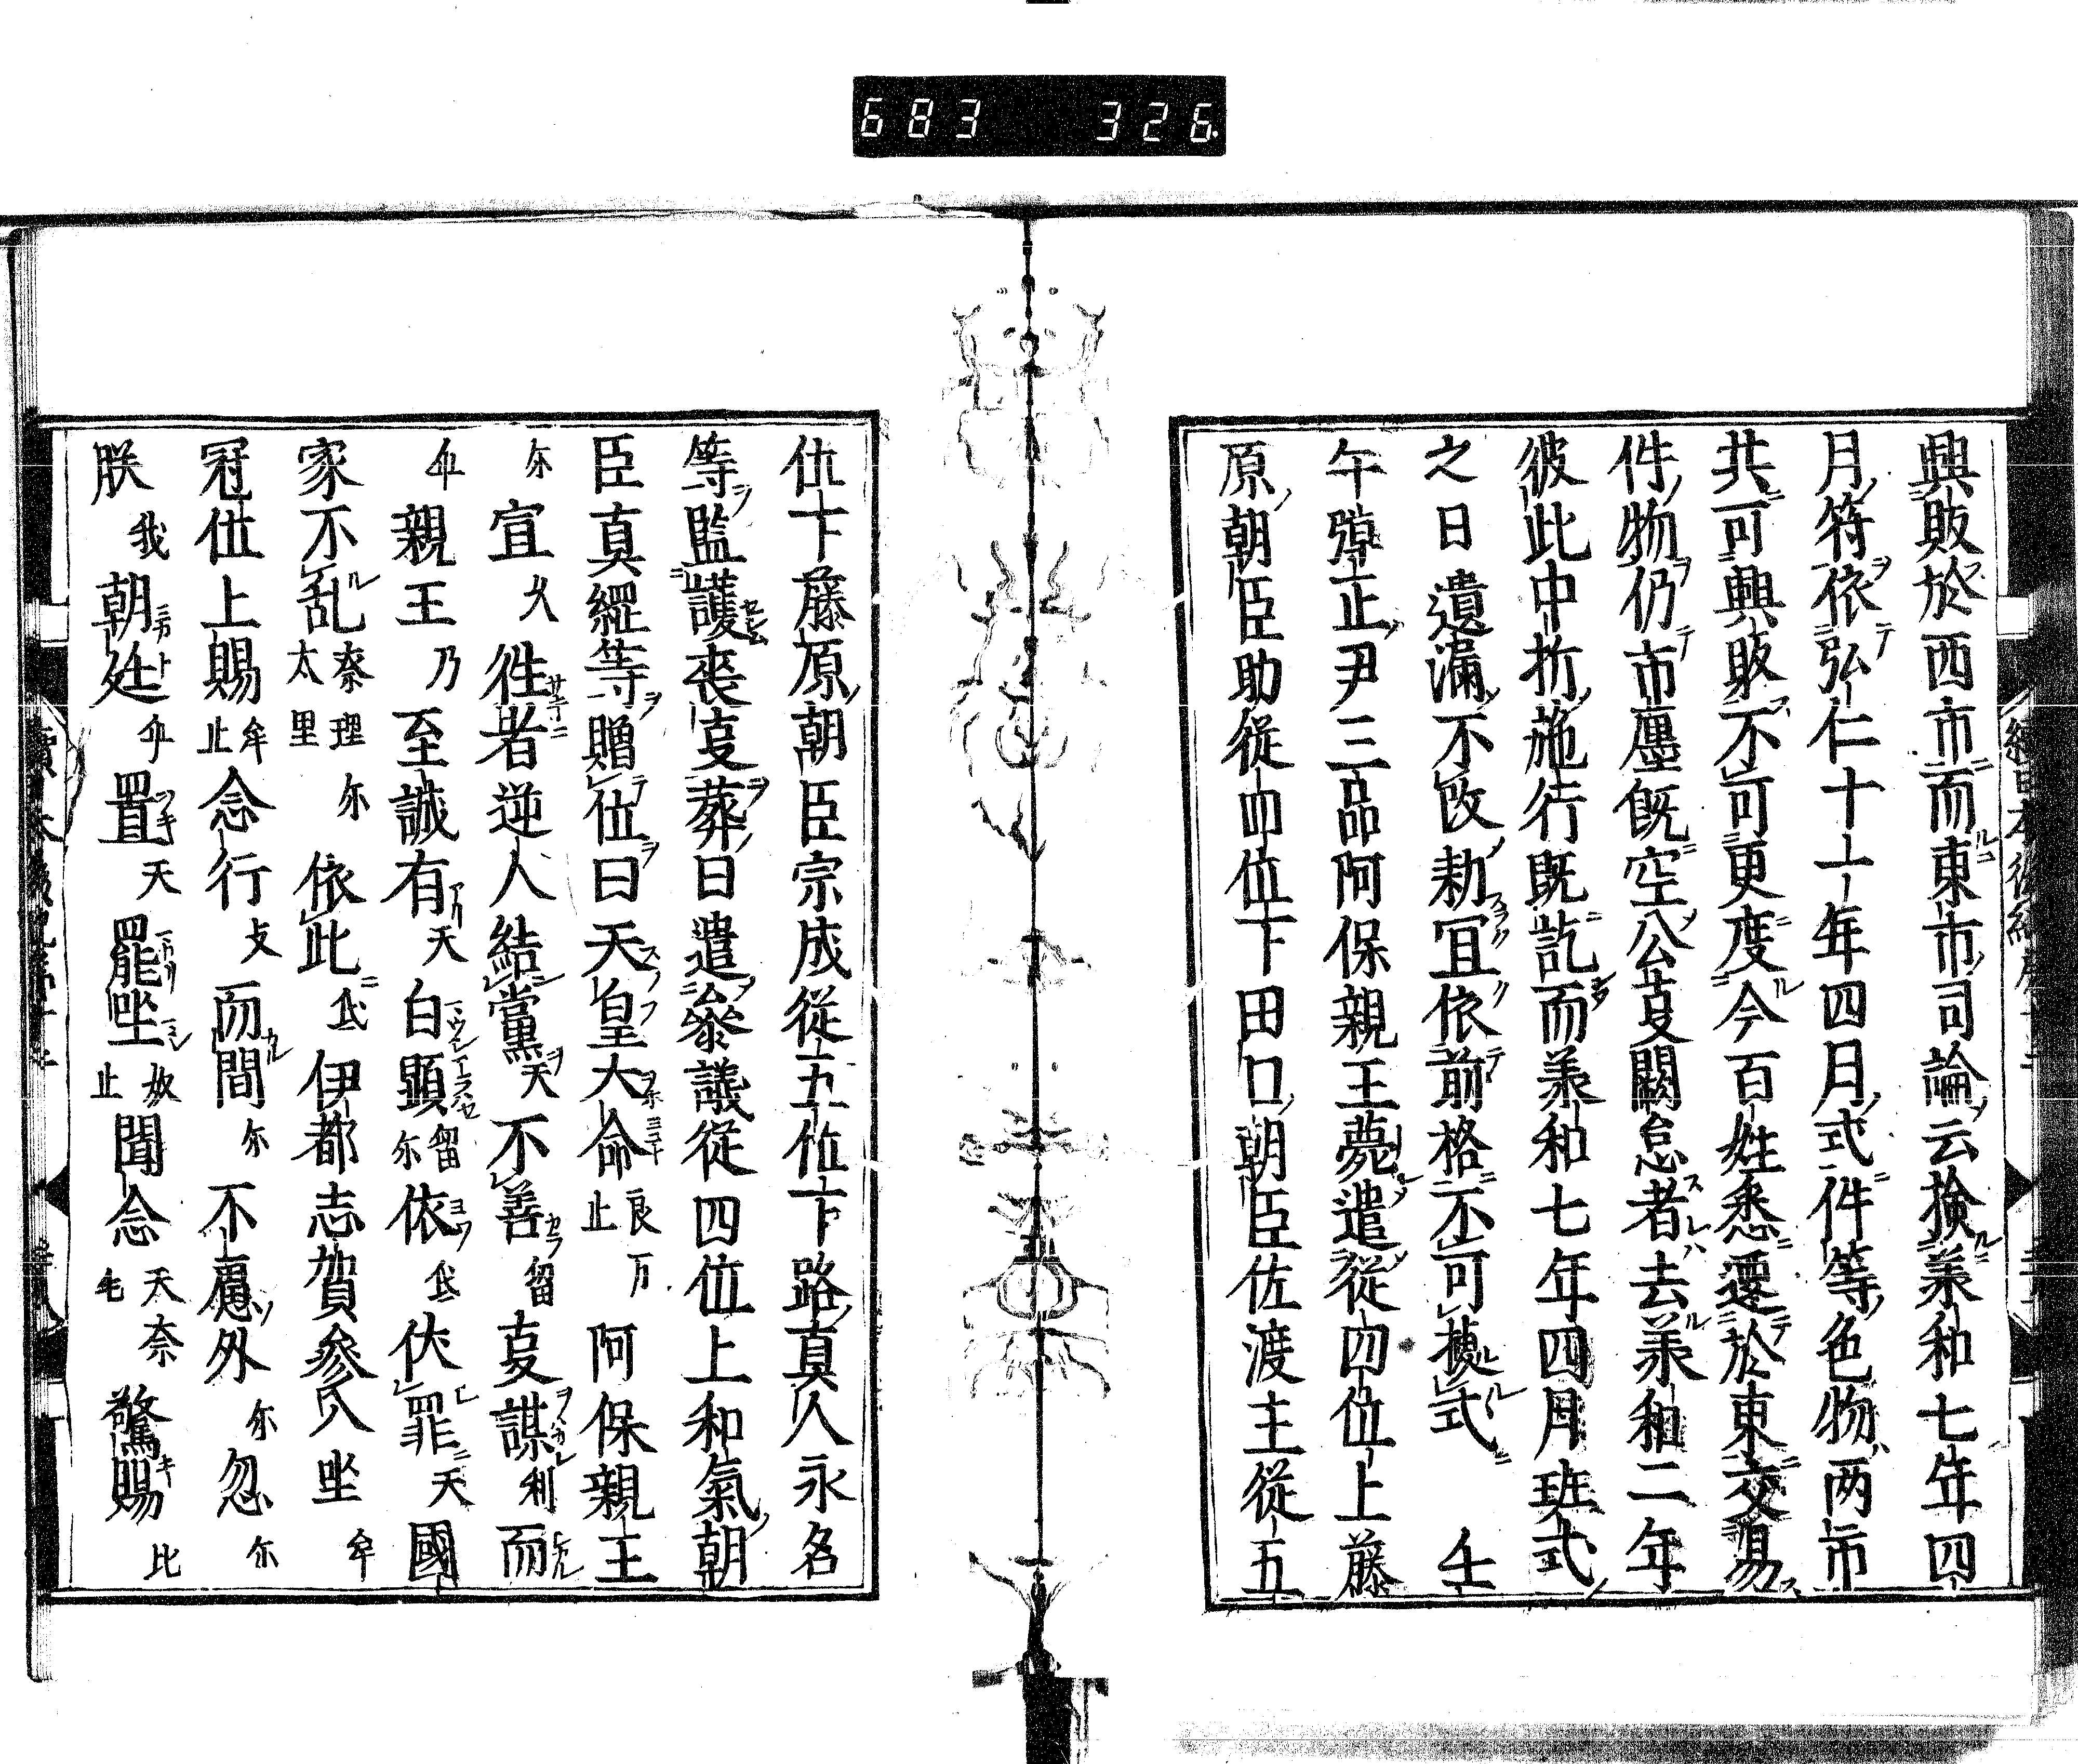 683 326
興販於西市而東市司論云撿美和七年四
月符依弘仁十一年四月式件等色物两市
共可興販不可更度今百姓悉遷於東交易
件物仍市廛既空公叓闕怠者去美和二年
彼此中折施行既訖而美和七年四月班式
之日遺漏不改勅宜依前格不可據式 壬
午弾正尹三品阿保親王薨遣從四位上藤
原朝臣助從四位下田口朝臣佐渡主從五
位下藤原朝臣宗成從五位下路真人永名
等監護喪叓葬日遣參議從四位上和氣朝
臣真綱等贈位曰天皇大命良万止阿保親王
尓宣久徃者逆人結黨天不善留叓謀利而
伞親王乃至誠有天白顕留尓依氐伏罪天國
家不乱奈太理里尓依此氐伊都志賀參入坐牟
冠位上賜牟止念行攴而間尓不慮外尓忽尓
朕我朝廷乎置天罷坐奴止聞念天奈毛驚賜比